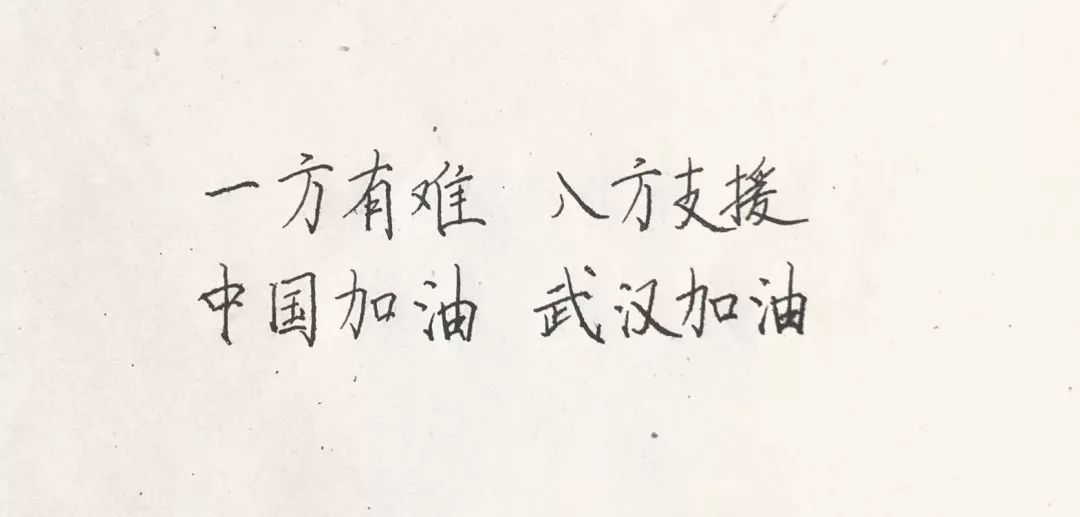 一方有难 八方支援
中国加油 武汉加油